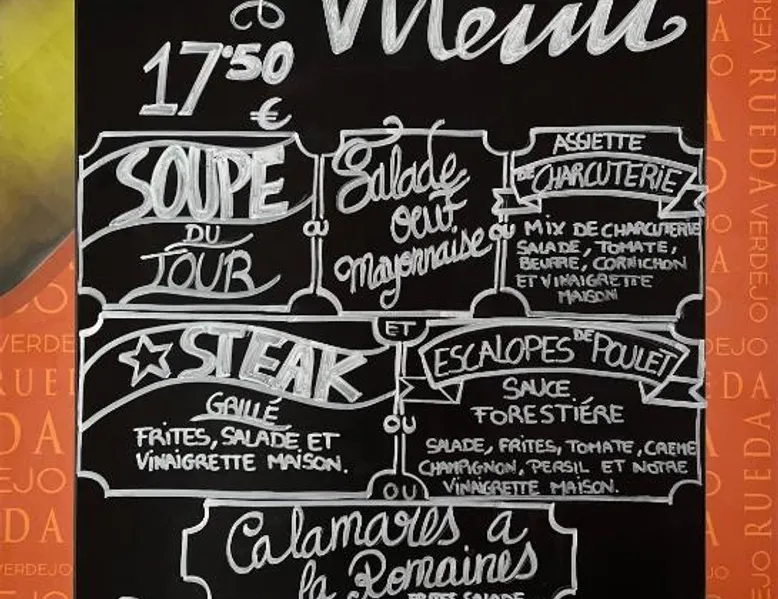 Menu
17'50
€
SOUPE
DU
JOUR
OU
Salade
oeuf
Mayonnaise
OU
ASSIETTE
DE CHARCUTERIE
MIX DE CHARCUTERIE
SALADE, TOMATE,
BEURRE, CORNICHON
ET VINAIGRETTE
MAISON
ET
STEAK
GRILLÉ
FRITES, SALADE ET
VINAIGRETTE MAISON.
OU
ESCALOPES DE POULET
SAUCE
FORESTIÉRE
SALADE, FRITES, TOMATE, CREME
CHAMPIGNON, PERSIL ET NOTRE
VINAIGRETTE MAISON.
OU
Calamares a
la Romaines
FRITES SALADE
VERDEJO
RUEDA
VERDEJO
RUEDA
VERDEJO